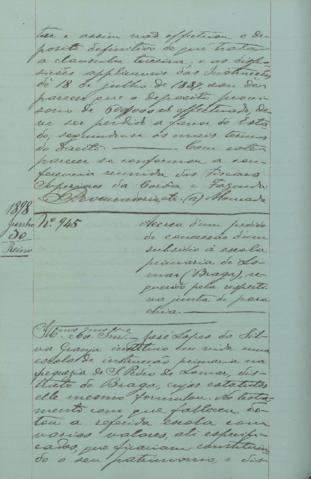 tar e assim não effectuou o de-
posito definitivo de que trata
a clausula terceira, e as dispo-
sições applicaveis das Instrucções
de 18 de julho de 1887, sou de
parecer que o deposito provi-
sorio de effectuado, de-
ve ser perdido a favor do Esta-
do, seguindo-se os mais termos
de Direito. — Com este
parecer se conformou a con-
ferencia reunida dos Fiscaes
Superiores da Corôa e Fazenda
Procuradoria etc. (a)
1898
Junho
30
Reino
Nº 945
Ácerca d'um pedido
de concessão d'um
subsidio á escola
primaria de Lo-
mar (Braga), re-
querido pela respecti-
va junta de paro-
chia —
Illmo Exmo Snr — José Lopes da Sil-
va Granja instituiu em vida uma
escola de instrucção primaria na
freguezia de S. Pedro de Lomar, dis-
tricto de Braga, cujos estatutos
elle mesmo formulou. No testa-
mento com que falleceu do-
tou a referida escola com
varios valores, ali especifi-
cados, que ficariam constituin-
do o seu patrimonio, e dis-